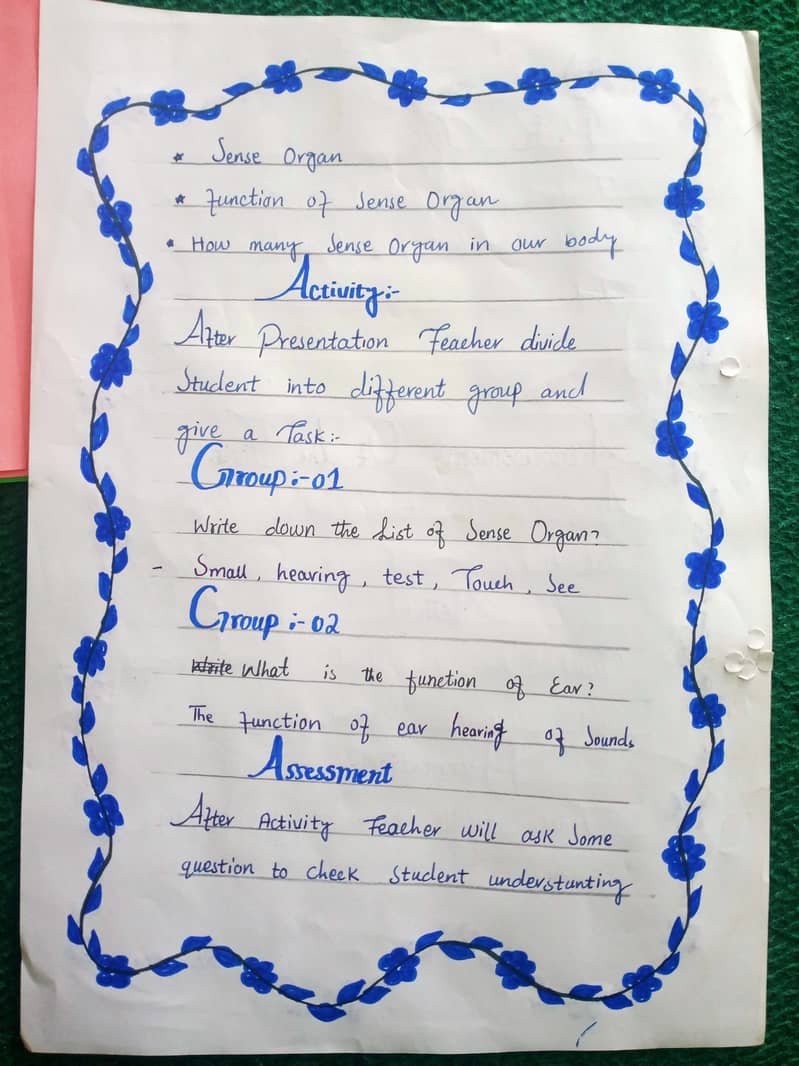 * Sense Organ
* Function of Sense Organ
• How many Sense Organ in our body
Activity:-
After Presentation Teacher divide
Student into different group and
give a Task:-
Group:-01
Write down the List of Sense Organ?
- Small, hearing, test, Touch, See
Group:-02
Write What is the function of Ear?
The function of ear hearing of Sounds
Assessment
After Activity Teacher will ask Some
question to check Student understanting